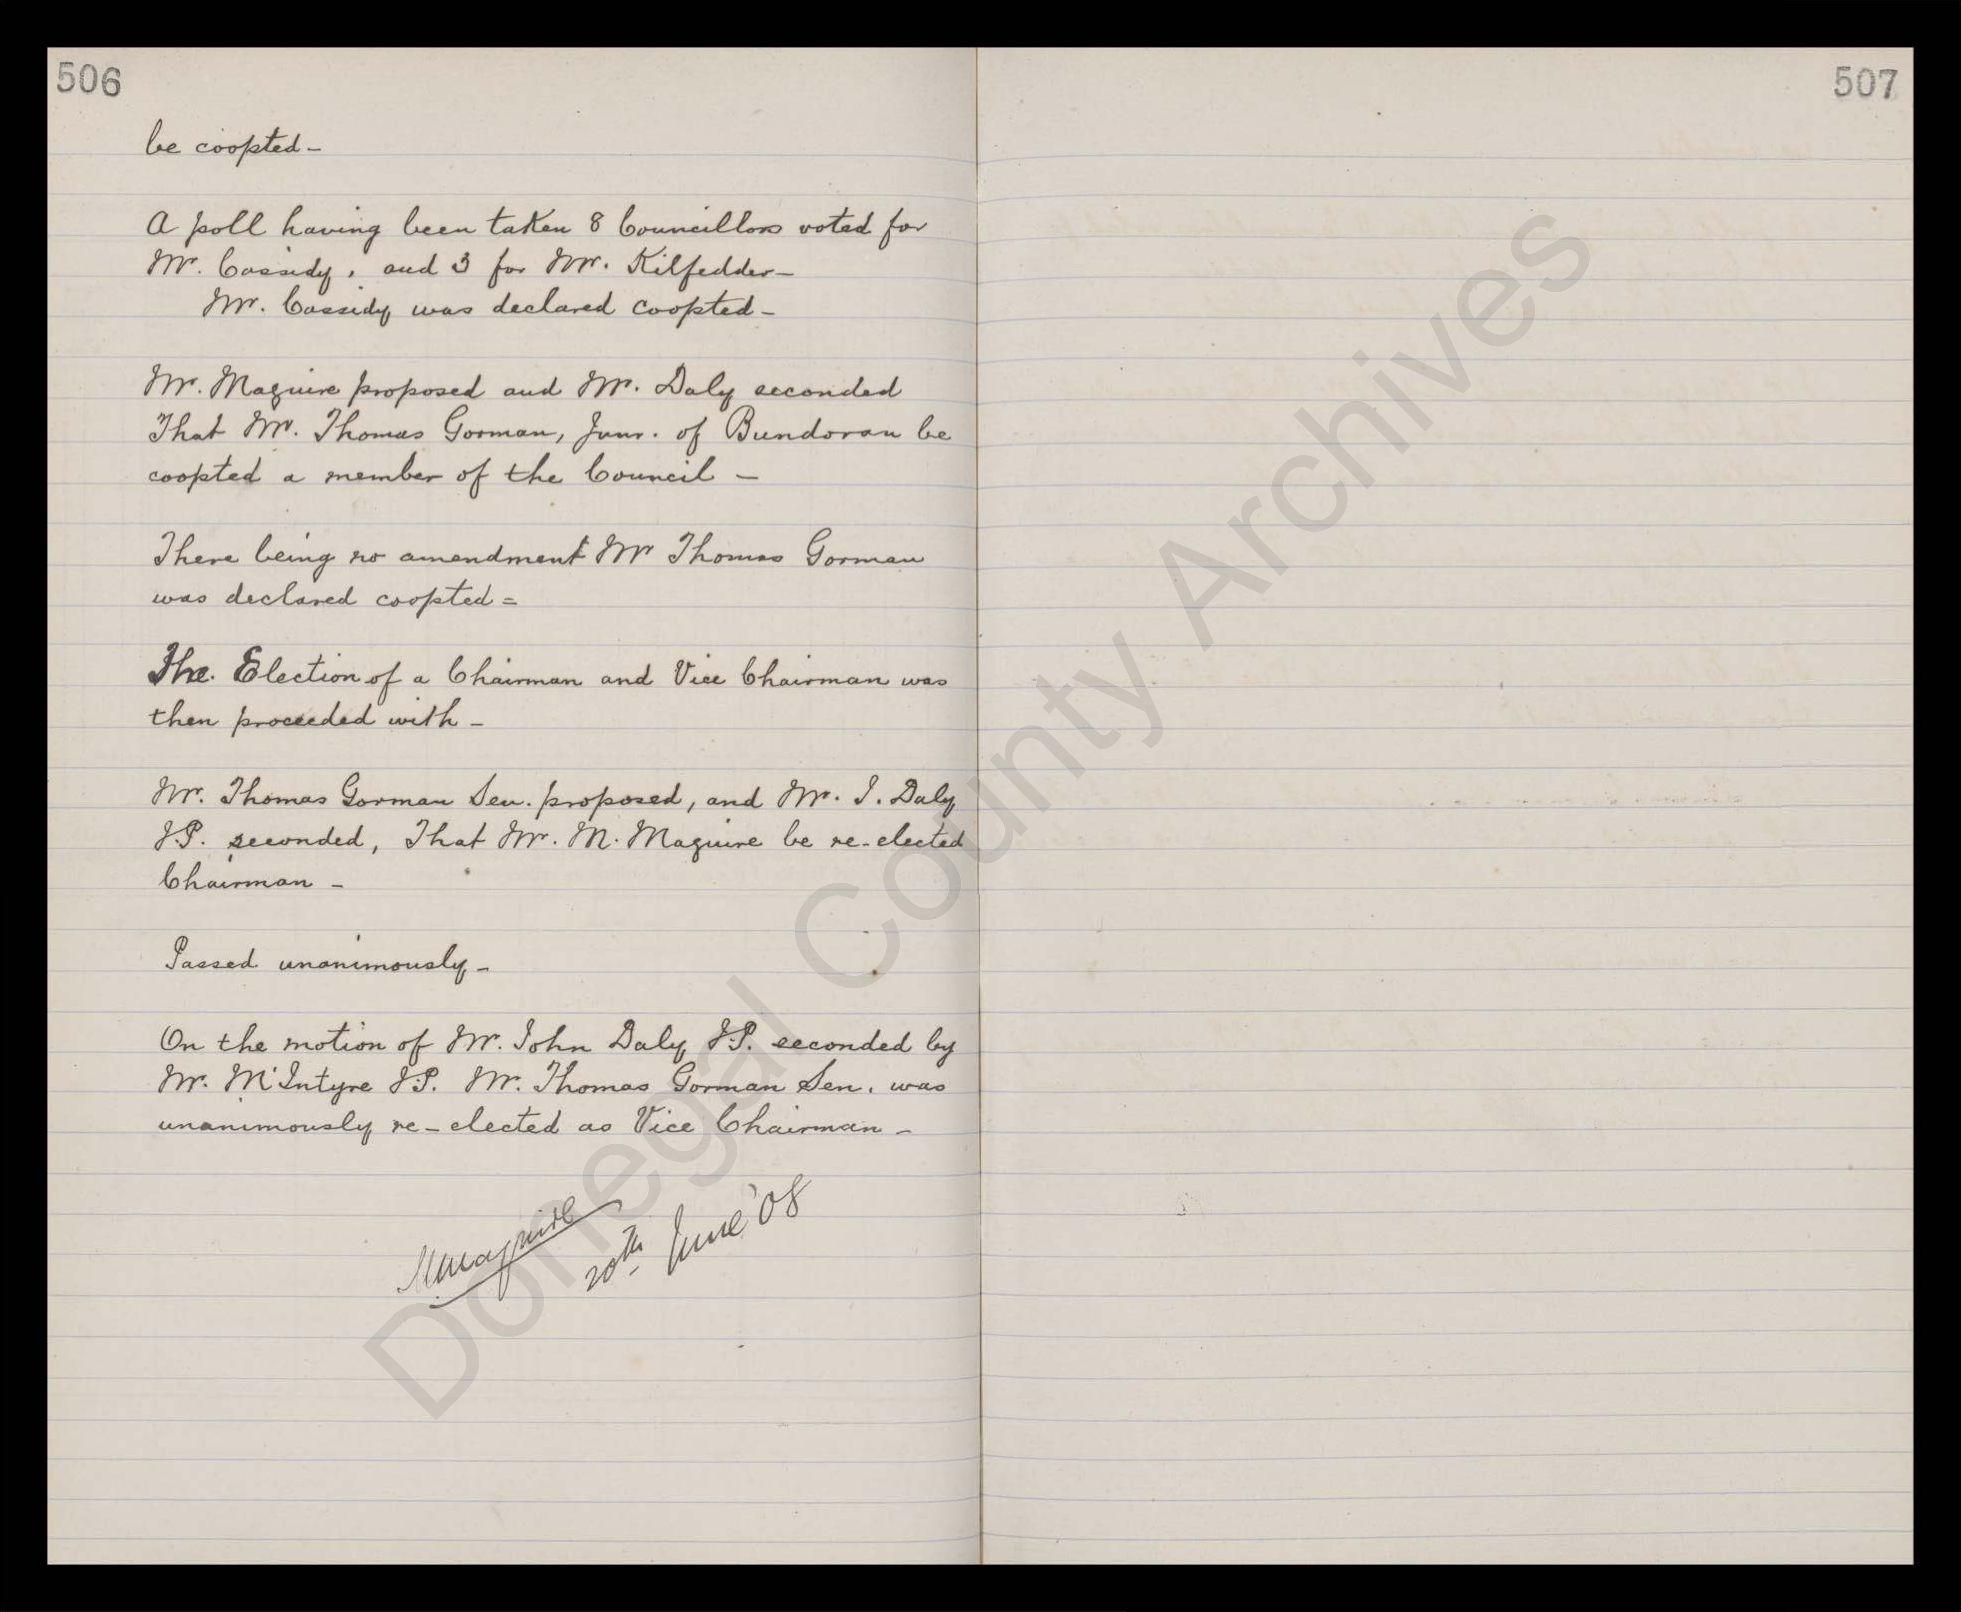 506
be coopted -
A poll having been taken 8 Councillors voted for
Mr. Cassidy, and 3 for Mr. Kilfedder -
Mr. Cassidy was declared coopted -
Mr. Maguire proposed and Mr. Daly seconded
That Mr. Thomas Gorman, Junr. of Bundoran be
coopted a member of the Council -
There being no amendment Mr Thomas Gorman
was declared coopted =
The. Election of a Chairman and Vice Chairman was
then proceeded with -
Mr. Thomas Gorman Sen. proposed, and Mr. J. Daly
J.P. seconded, That Mr. M. Maguire be re-elected
Chairman -
Passed unanimously -
On the motion of Mr. John Daly J.P. seconded by
Mr. M'Intyre J.P. Mr. Thomas Gorman Sen. was
unanimously re-elected as Vice Chairman -
MMaguire
20th June '08
507
Donegal County Archives